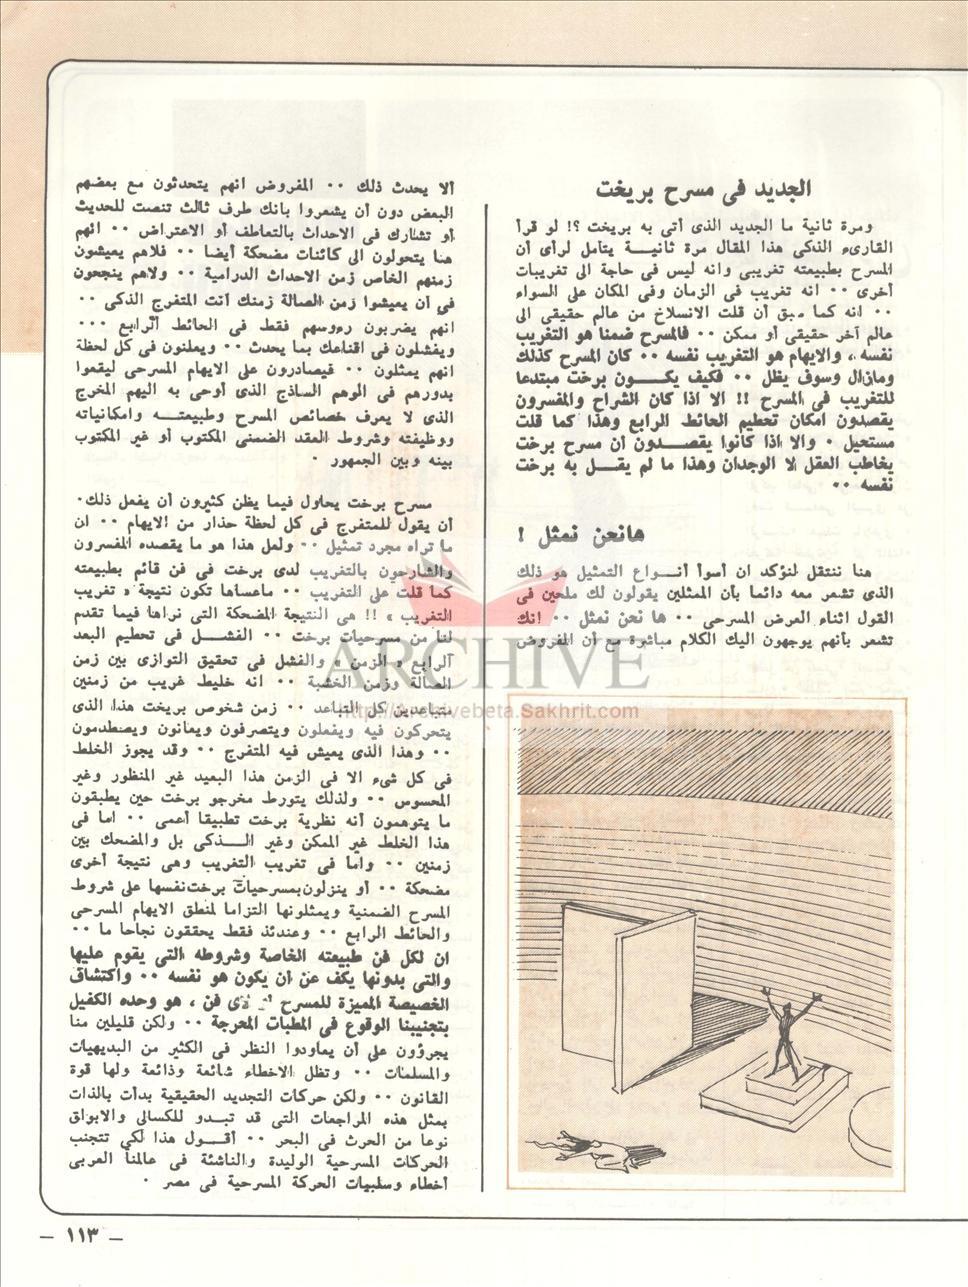 الجديد فى مسرح بريخت
ومرة ثانية ما الجديد الذى أتى به بريخت ؟! لو قرأ
القارىء الذكى هذا المقال مرة ثانيـــة يتأمل لرأى أن
المسرح بطبيعته تغريبى وانه ليس فى حاجة الى تغريبات
أخرى ٠٠ انه تغريب فى الزمان وفى المكان على السواء
٠٠ انه كما سبق أن قلت الانسلاخ من عالم حقيقى الى
عالم آخر حقيقى أو ممكن ٠٠ فالمسرح ضمنا هو التغريب
نفسه ، والايهام هو التغريب نفسه ٠٠ كان المسرح كذلك
ومازال وسوف يظل ٠٠ فكيف يكـــون برخت مبتدعا
للتغريب فى المسرح !! الا اذا كان الشراح والمفسرون
يقصدون امكان تحطيم الحائط الرابع وهذا كما قلت
مستحيل ٠ والا اذا كانوا يقصـــدون أن مسرح برخت
يخاطب العقل لا الوجدان وهذا ما لم يقـــل به برخت
نفسه ٠٠
هانحن نمثل !
هنا ننتقل لنؤكد ان أسوأ أنـــواع التمثيل هو ذلك
الذى تشعر معه دائما بأن الممثلين يقولون لك ملحين فى
القول اثناء العرض المسرحى ٠٠ ها نحن نمثل ٠٠ انك
تشعر بأنهم يوجهون اليك الكلام مباشرة مع أن المفروض
ألا يحدث ذلك ٠٠ المفروض انهم يتحدثون مع بعضهم
البعض دون أن يشعروا بانك طرف ثالث تنصت للحديث
أو تشارك فى الاحداث بالتعاطف أو الاعتراض ٠٠ انهم
هنا يتحولون الى كائنات مضحكة أيضا ٠٠ فلاهم يعيشون
زمنهم الخاص زمن الاحداث الدرامية ٠٠ ولاهم ينجحون
فى أن يعيشوا زمن الصالة زمنك أنت المتفرج الذكى ٠٠
انهم يضربون رءوسهم فقط فى الحائط الرابع ٠٠٠
ويفشلون فى اقناعك بما يحدث ٠٠ ويعلنون فى كل لحظة
انهم يمثلون ٠٠ فيصادرون على الايهام المسرحى ليقعوا
بدورهم فى الوهم الساذج الذى أوحى به اليهم المخرج
الذى لا يعرف خصائص المسرح وطبيعتـــه وامكانياته
ووظيفته وشروط العقد الضمنى المكتوب أو غير المكتوب
بينه وبين الجمهور ٠
مسرح برخت يحاول فيما يظن كثيرون أن يفعل ذلك٠
أن يقول للمتفرج فى كل لحظة حذار من الايهام ٠٠ ان
ما تراه مجرد تمثيل ٠٠ ولعل هذا هو ما يقصده المفسرون
والشارحون بالتغريب لدى برخت فى فن قائم بطبيعته
كما قلت على التغريب ٠٠ ماعساها تكون نتيجة « تغريب
التغريب » !! هى النتيجة المضحكة التى نراها فيما تقدم
لنا من مسرحيات برخت ٠٠ الفشـــل فى تحطيم البعد
الرابع « الزمن » والفشل فى تحقيق التوازى بين زمن
الصالة وزمن الخشبة ٠٠ انه خليط غريب من زمنين
متباعدين كل التباعد ٠٠ زمن شخوص بريخت هذا الذى
يتحركون فيه ويفعلون ويتصرفون ويعانون ويصطدمون
٠٠ وهذا الذى يعيش فيه المتفرج ٠٠ وقد يجوز الخلط
فى كل شىء الا فى الزمن هذا البعيد غير المنظور وغير
المحسوس ٠٠ ولذلك يتورط مخرجو برخت حين يطبقون
ما يتوهمون أنه نظرية برخت تطبيقا أعمى ٠٠ اما فى
هذا الخلط غير الممكن وغير الـــذكى بل والمضحك بين
زمنين ٠٠ واما فى تغريب التغريب وهى نتيجة أخرى
مضحكة ٠٠ أو ينزلون بمسرحيات برخت نفسها على شروط
المسرح الضمنية ويمثلونها التزاما لمنطق الايهام المسرحى
والحائط الرابع ٠٠ وعندئذ فقط يحققون نجاحا ما ٠٠
ان لكل فن طبيعته الخاصة وشروطه التى يقوم عليها
والتى بدونها يكف عن أن يكون هو نفسه ٠٠ واكتشاف
الخصيصة المميزة للمسرح لأى فن ، هو وحده الكفيل
بتجنيبنا الوقوع فى المطبات المحرجة ٠٠ ولكن قليلين منا
يجرؤون على أن يعاودوا النظر فى الكثير من البديهيات
والمسلمات ٠٠ وتظل الاخطاء شائعة وذائعة ولها قوة
القانون ٠٠ ولكن حركات التجديد الحقيقية بدأت بالذات
بمثل هذه المراجعات التى قد تبـدو للكسالى والابواق
نوعا من الحرث فى البحر ٠٠ أقـــول هذا لكى تتجنب
الحركات المسرحية الوليدة والناشئة فى عالمنا العربى
أخطاء وسلبيات الحركة المسرحية فى مصر ٠
ARCHIVE
http://Archivebeta.Sakhrit.com
— ١١٣ —